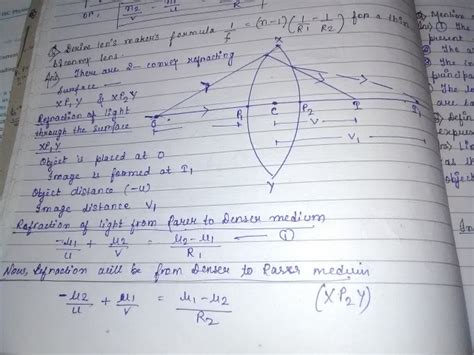 n2/v - u1/u = n2 - n1/R1
Q) Derive len's maker's formula 1/f = (n-1)(1/R1 - 1/R2) for a thin
biconvex lens.
Ans) There are 2- convex refracting
Surface
XP1Y & XP2Y
Refraction of light
through the surface
XP1Y
Object is placed at O
Image is formed at I1
Object distance (-u)
Image distance V1
X
O P1 C P2 I I1
V
V1
Y
Refraction of light from Rarer to Denser medium
-u1/u + u2/v1 = u2 - u1/R1 (i)
Now, Refraction will be from Denser to Rarer medium
-u2/u + u1/v = u1 - u2/R2 (XP2Y)